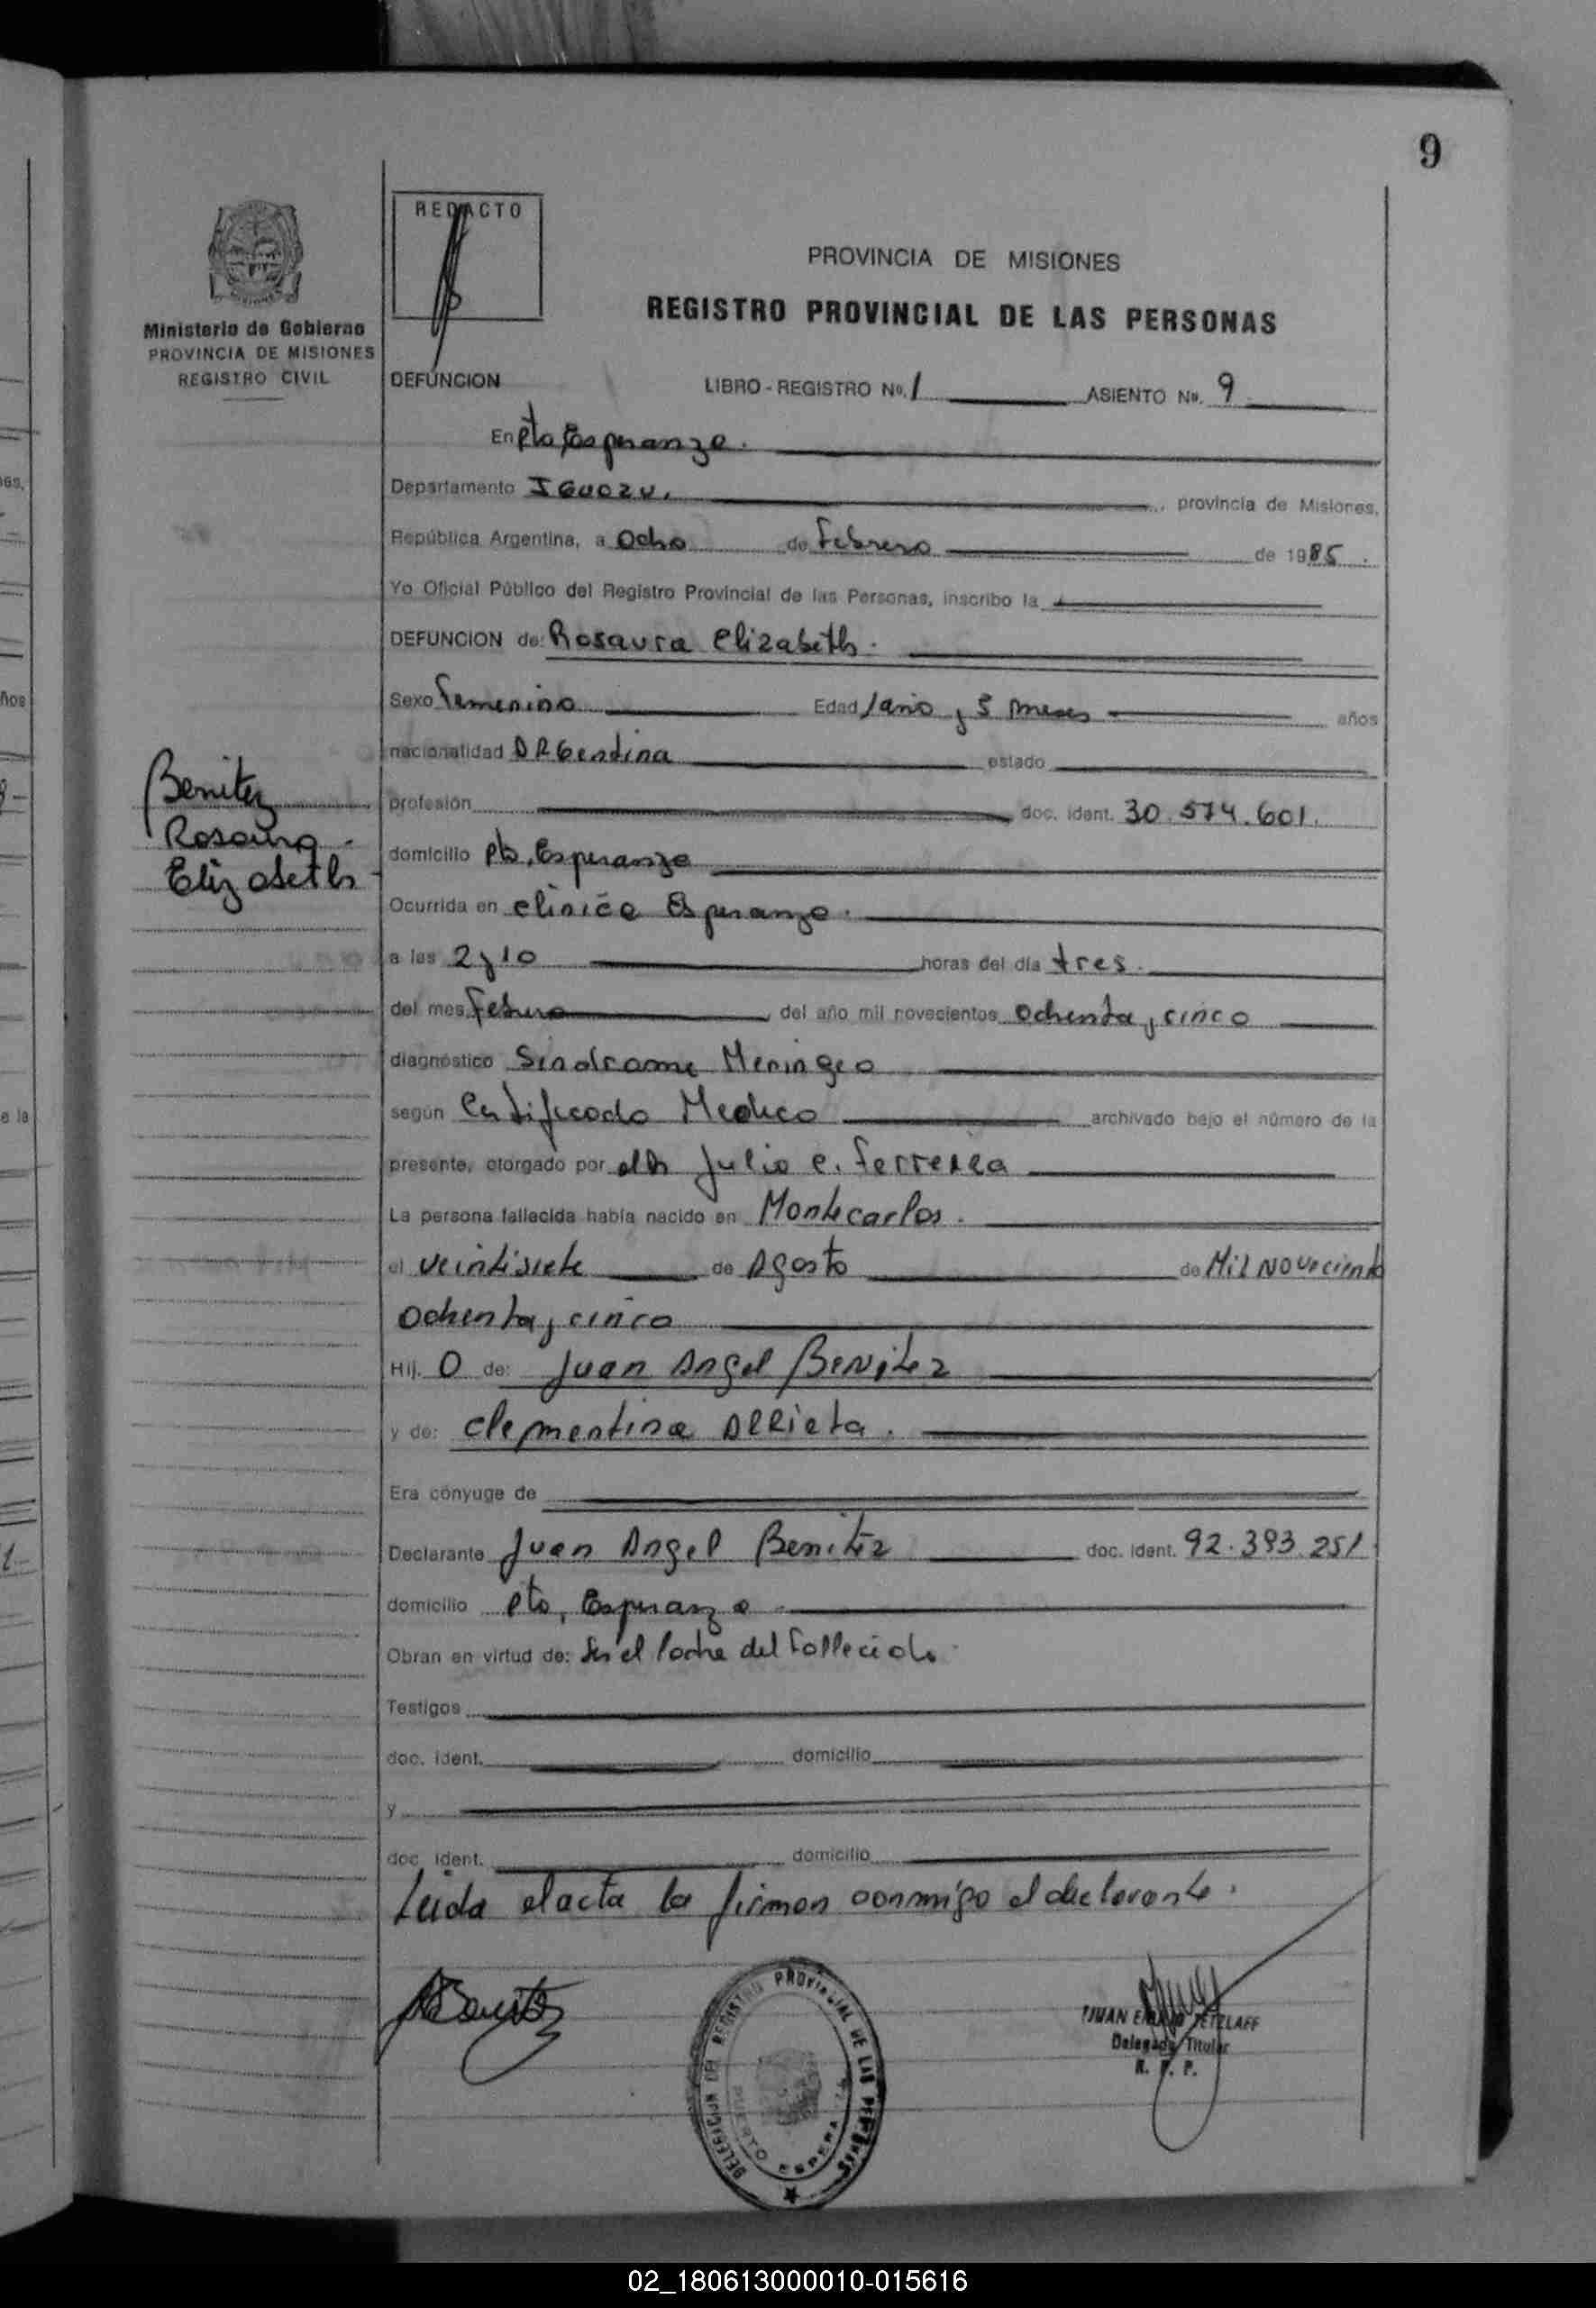 9
REDACTO
PROVINCIA DE MISIONES
REGISTRO PROVINCIAL DE LAS PERSONAS
Ministerio de Gobierno
PROVINCIA DE MISIONES
REGISTRO CIVIL
DEFUNCION LIBRO - REGISTRO No. 1 ASIENTO No. 9
En Pto, Esperanza.
Departamento IGUAZU, provincia de Misiones,
República Argentina, a Ocho de Febrero de 1985.
Yo Oficial Público del Registro Provincial de las Personas, inscribo la
DEFUNCION de: Rosaura Elizabeth.
Sexo Femenino Edad 1 año y 5 meses años
nacionalidad ARGentina estado
Benitez
Rosaura
Elizabeth
profesión doc. ident. 30.574.601.
domicilio Pto, Esperanza
Ocurrida en clinica Esperanza.
a las 2 y 10 horas del día tres.
del mes Febrero del año mil novecientos ochenta y cinco
diagnóstico Sindrome Meningeo
según Certificado Medico archivado bajo el número de la
presente, otorgado por el Dr Julio C. Ferreira
La persona fallecida había nacido en Montecarlos.
el veintisiete de Agosto de Mil Noveciento
Ochenta y cinco
Hij. O de: Juan Angel Benitez
y de: Clementina ARRieta.
Era cónyuge de
Declarante Juan Angel Benitez doc. ident. 92.393.251
domicilio Pto, Esperanza
Obran en virtud de: Ser el Padre del Fallecido.
Testigos
doc. ident. domicilio
y
doc. ident. domicilio
Leida el acta la firman conmigo el declarante.
Benitez
DELEGACION DEL REGISTRO PROVINCIAL DE LAS PERSONAS
PUERTO ESPERANZA
JUAN TETZLAFF
Delegado Titular
R. P. P.
02_180613000010-015616